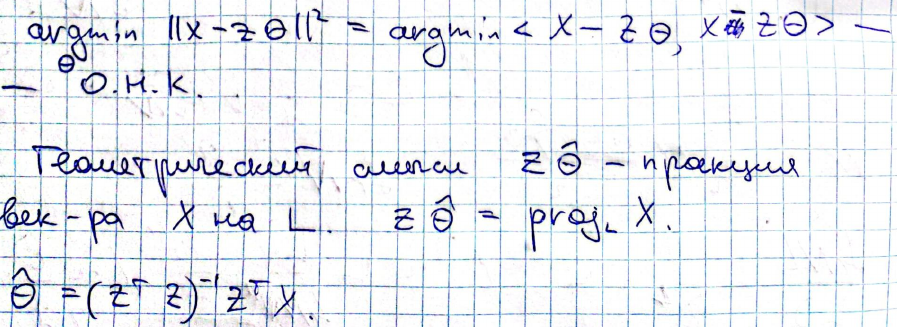 argmin ||X - Zθ||² = argmin < X - Zθ, X - Zθ > —
θ
— О.Н.К.
Геометрический смысл Z θ̂ - проекция
век-ра X на L. Z θ̂ = proj_L X.
θ̂ = (Zᵀ Z)⁻¹ Zᵀ X.